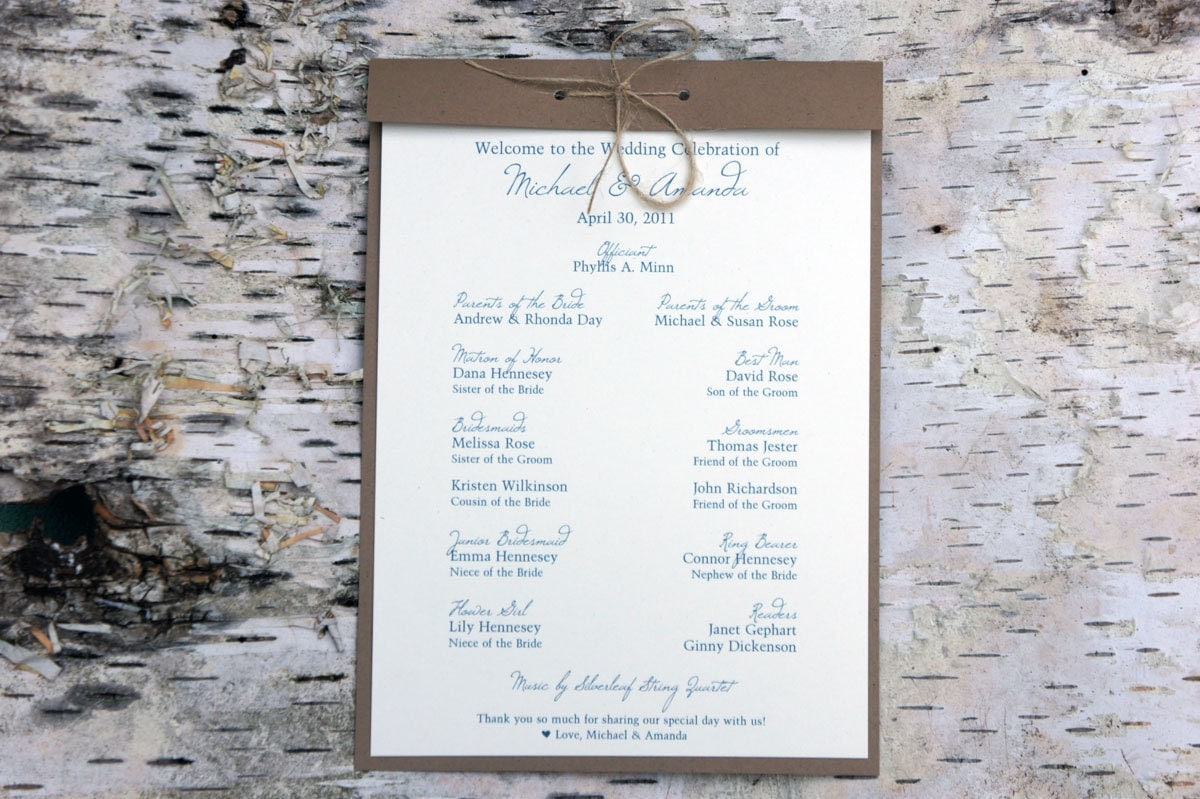 Welcome to the Wedding Celebration of
Michael & Amanda
April 30, 2011
Officiant
Phyllis A. Minn
Parents of the Bride
Andrew & Rhonda Day
Parents of the Groom
Michael & Susan Rose
Matron of Honor
Dana Hennesey
Sister of the Bride
Best Man
David Rose
Son of the Groom
Bridesmaids
Melissa Rose
Sister of the Groom
Kristen Wilkinson
Cousin of the Bride
Groomsmen
Thomas Jester
Friend of the Groom
John Richardson
Friend of the Groom
Junior Bridesmaid
Emma Hennesey
Niece of the Bride
Ring Bearer
Connor Hennesey
Nephew of the Bride
Flower Girl
Lily Hennesey
Niece of the Bride
Readers
Janet Gephart
Ginny Dickenson
Music by Silverleaf String Quartet
Thank you so much for sharing our special day with us!
♥ Love, Michael & Amanda